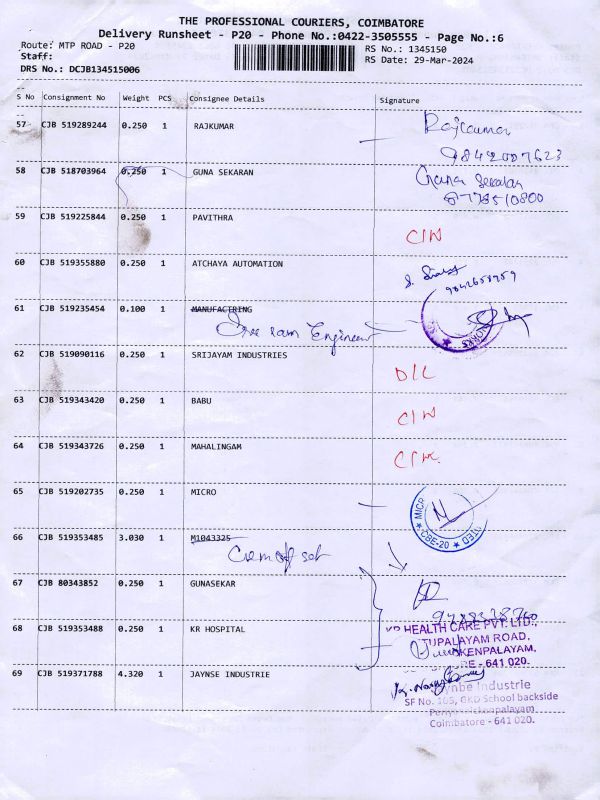 THE PROFESSIONAL COURIERS, COIMBATORE
Delivery Runsheet - P20 - Phone No.:0422-3505555 - Page No.:6
Route: MTP ROAD - P20 RS No.: 1345150
Staff: RS Date: 29-Mar-2024
DRS No.: DCJB134515006
S No Consignment No Weight PCS Consignee Details Signature
57 CJB 519289244 0.250 1 RAJKUMAR Rajkumar
9842007623
58 CJB 518703964 0.250 1 GUNA SEKARAN Guna Sekaran
59 CJB 519225844 0.250 1 PAVITHRA C/N
60 CJB 519355880 0.250 1 ATCHAYA AUTOMATION
9842658959
61 CJB 519235454 0.100 1 MANUFACTRING
Sree ram Engineer
62 CJB 519090116 0.250 1 SRIJAYAM INDUSTRIES D/L
63 CJB 519343420 0.250 1 BABU C/N
64 CJB 519343726 0.250 1 MAHALINGAM
65 CJB 519202735 0.250 1 MICRO
CBE-20
66 CJB 519353485 3.030 1 M1043325
67 CJB 80343852 0.250 1 GUNASEKAR
68 CJB 519353488 0.250 1 KR HOSPITAL HEALTH CARE PVT. LTD.,
TUPALAYAM ROAD,
KENPALAYAM,
RE - 641 020.
69 CJB 519371788 4.320 1 JAYNSE INDUSTRIE Industrie
SF No. 105, GKD School backside
Coimbatore - 641 020.